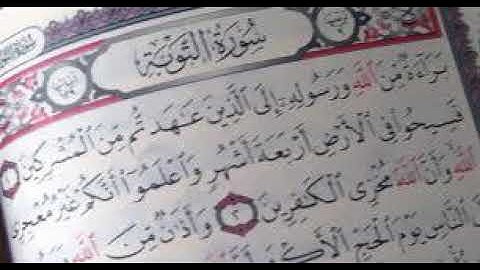 سُورَةُ التَّوْبَةِ
بَرَآءَةٌ مِّنَ ٱللَّهِ وَرَسُولِهِۦٓ إِلَى ٱلَّذِينَ عَٰهَدتُّم مِّنَ ٱلْمُشْرِكِينَ ١
فَسِيحُوا۟ فِى ٱلْأَرْضِ أَرْبَعَةَ أَشْهُرٍ وَٱعْلَمُوٓا۟ أَنَّكُمْ غَيْرُ مُعْجِزِى
ٱللَّهِ وَأَنَّ ٱللَّهَ مُخْزِى ٱلْكَٰفِرِينَ ٢ وَأَذَٰنٌ مِّنَ ٱللَّهِ
ٱلنَّاسِ يَوْمَ ٱلْحَجِّ ٱلْأَكْبَرِ